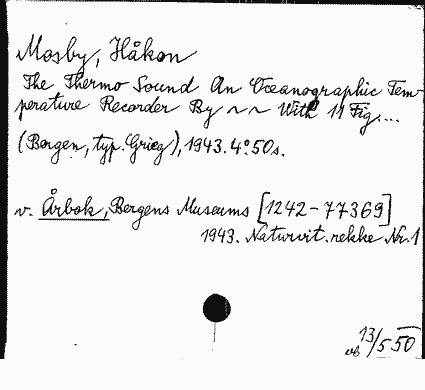 Mosby, Håkon
The Thermo Sound An Oceanographic Tem-
perature Recorder By ~ ~ With 11 Fig....
(Bergen, typ. Grieg), 1943. 4:o 50s.
v. Årbok, Bergens Museums [1242-77369]
1943. Naturvit. rekke Nr. 1
13/5 50